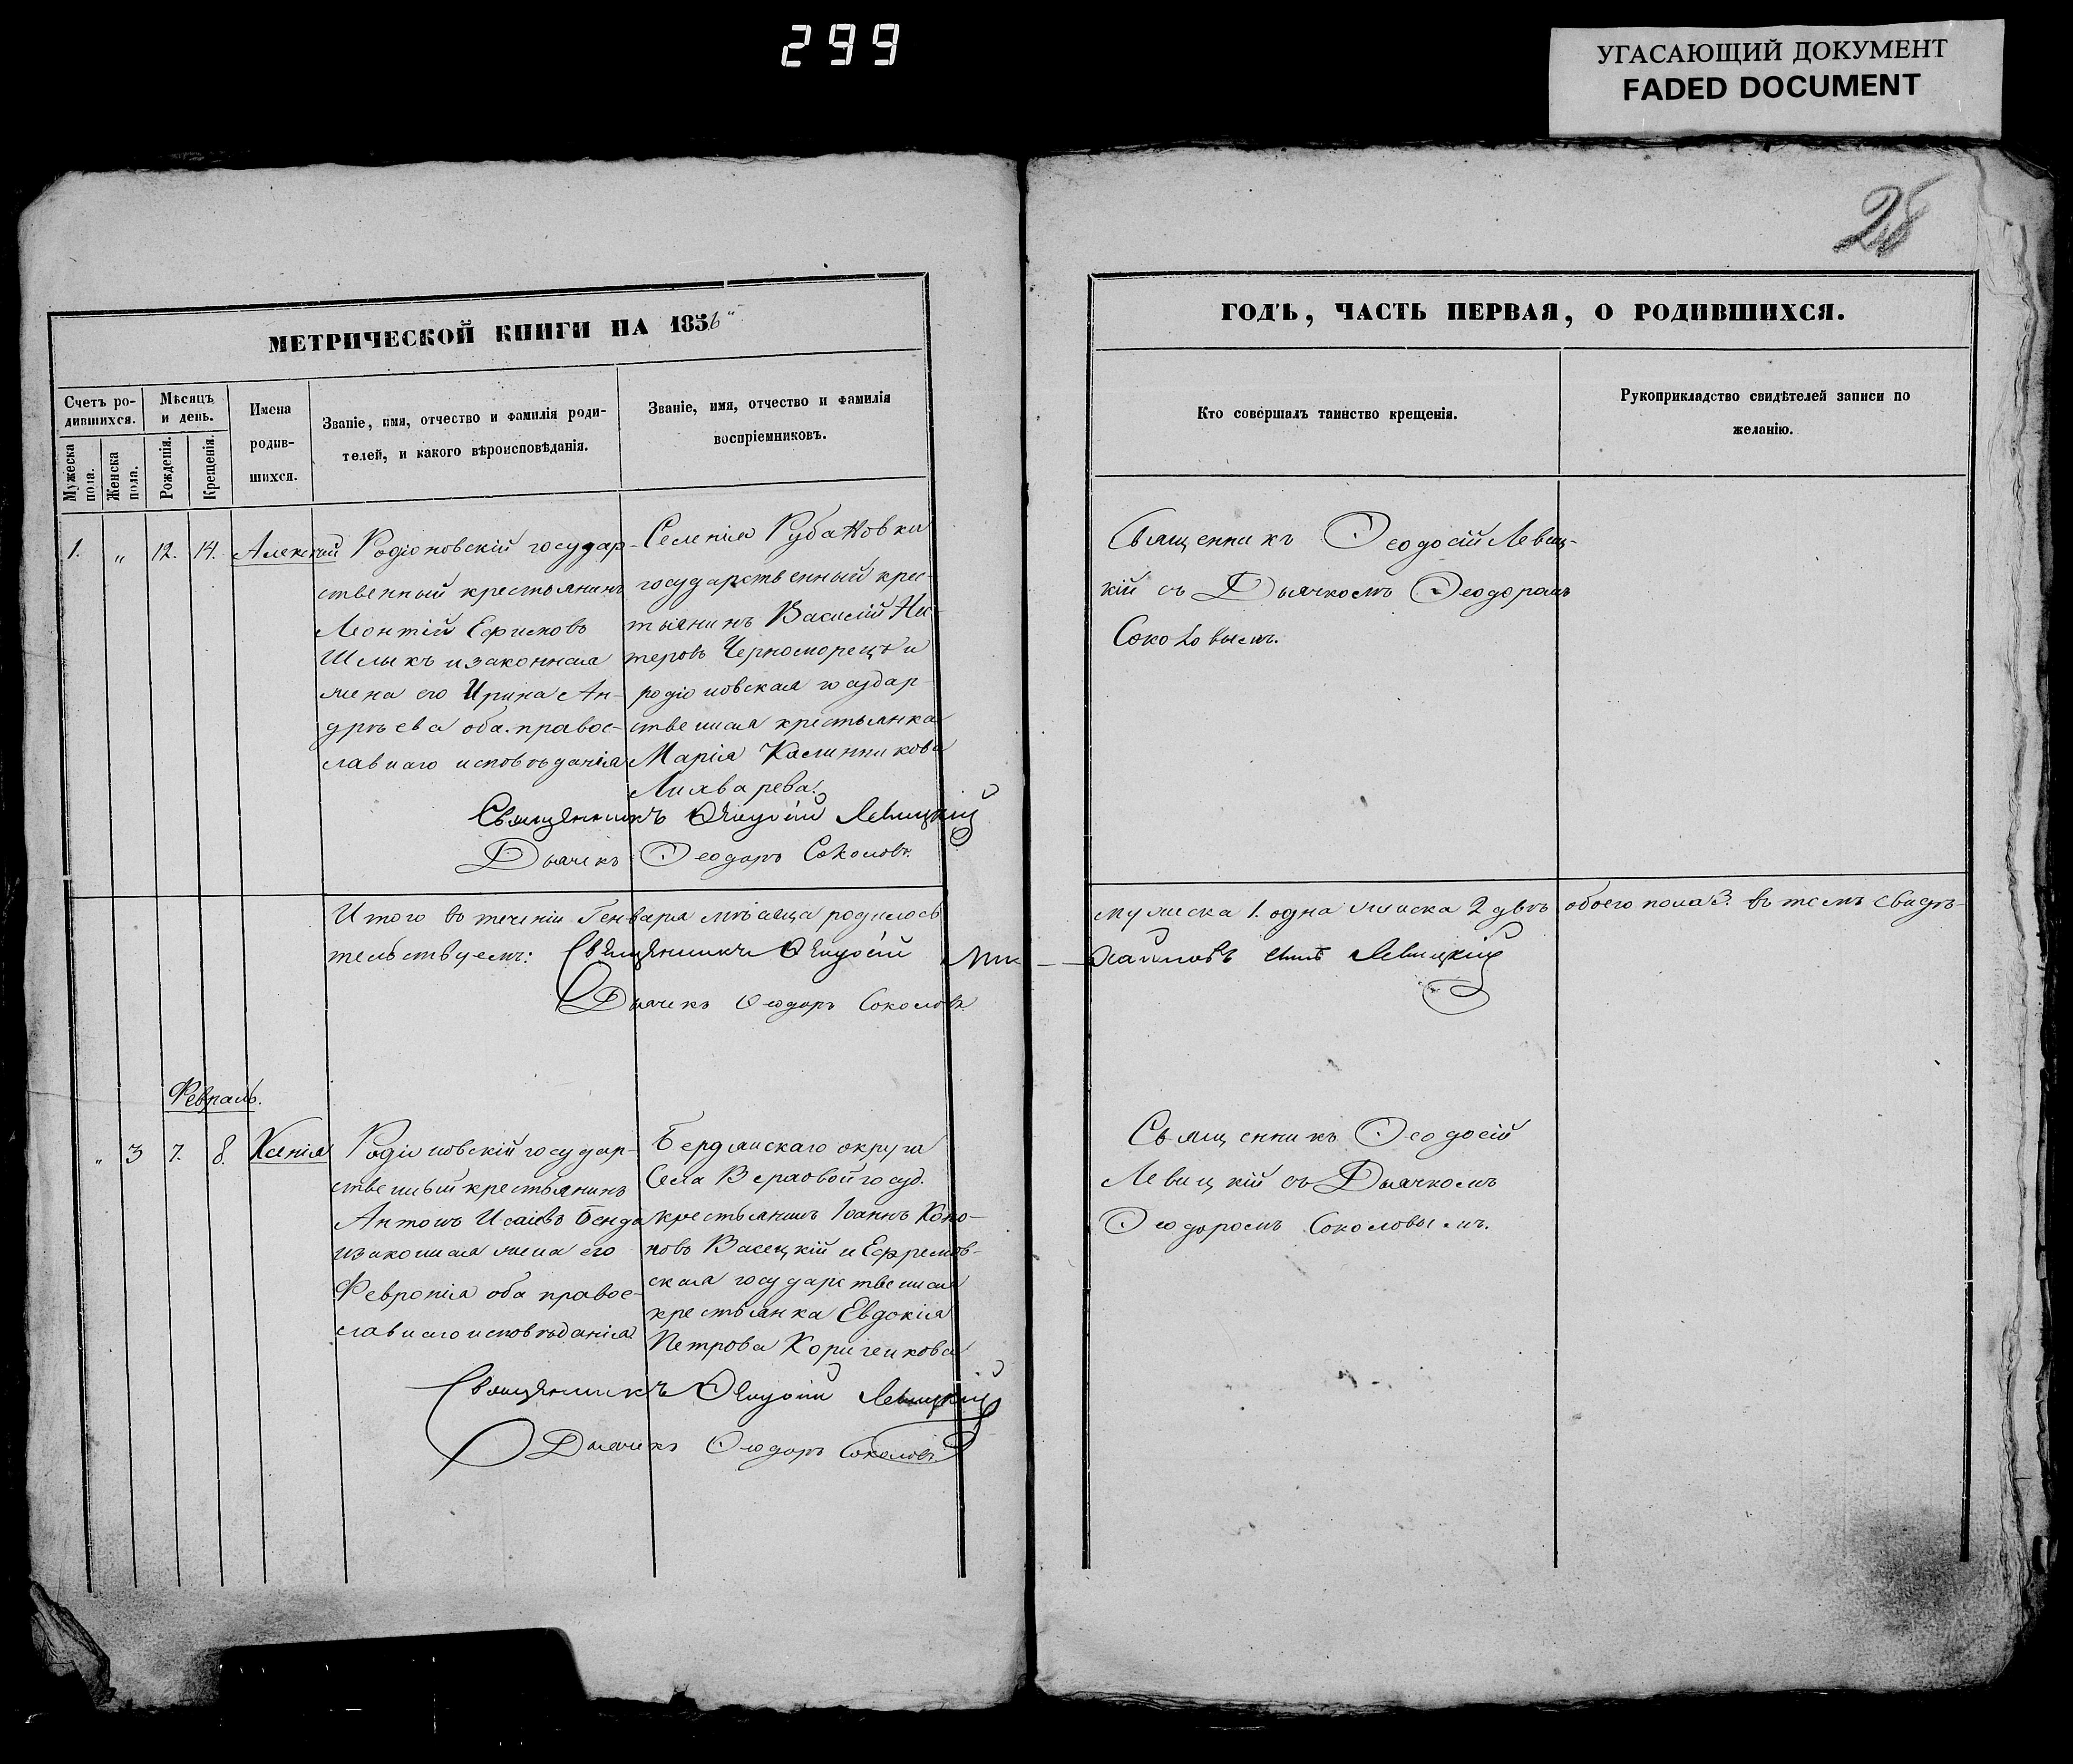 299
УГАСАЮЩИЙ ДОКУМЕНТ
FADED DOCUMENT
28
МЕТРИЧЕСКОЙ КНИГИ НА 1856
Счетъ ро-
дившихся.
Мужеска
пола.
Женска
пола.
Мѣсяцъ
и день.
Рожденія.
Крещенія.
Имена
родив-
шихся.
Званіе, имя, отчество и фамилія роди-
телей, и какого вѣроисповѣданія.
Званіе, имя, отчество и фамилія
воспріемниковъ.
1. „ 12. 14. Алексій
Родіоновскій государ-
ственный крестьянинъ
Леонтій Ефимовъ
Шлыкъ и законная
жена его Ирина Ан-
дрѣева оба православ-
славнаго исповѣданія
Селенія Рубановки
государственный крес-
тьянинъ Василій
Черноморецъ и
родіоновская государ-
ственная крестьянка
Марія Калинникова
Священникъ Ѳеодосій Левицкій
Дьячекъ Ѳеодоръ Соколовъ.
Итого въ теченіи Генваря мѣсяца родилось
тельствуемъ: Священникъ Ѳеодосій
Дьячекъ Ѳеодоръ Соколовъ
Февраль.
„ 3 7. 8. Ксенія
Родіоновскій государ-
ственный крестьянинъ
Антонъ Исаіевъ Бенда
и законная жена его
Февронія оба правос-
славнаго исповѣданія
Бердянскаго округа
Села Верховой госуд.
крестьянинъ Іоаннъ Коно-
новъ Васецкій и Ефремов-
ская государственная
крестьянка Евдокія
Петрова
Священникъ Ѳеодосій Левицкій
Дьячекъ Ѳеодоръ Соколовъ
ГОДЪ, ЧАСТЬ ПЕРВАЯ, О РОДИВШИХСЯ.
Кто совершалъ таинство крещенія.
Рукоприкладство свидѣтелей записи по
желанію.
Священникъ Ѳеодосій Левиц-
кій съ Дьячкомъ Ѳеодоромъ
Соколовымъ.
мужеска 1. одна женска 2 двѣ обоего пола 3. въ темъ свидѣ-
Левицкій
Священникъ Ѳеодосій
Левицкій съ Дьячкомъ
Ѳеодоромъ Соколовымъ.